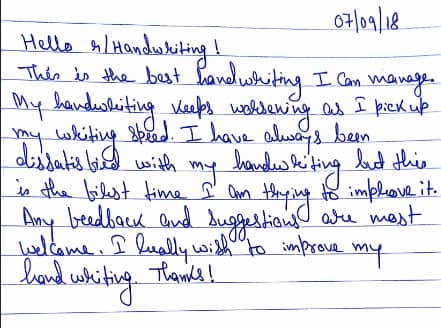 07/09/18
Hello r/Handwriting!
This is the best handwriting I can manage.
My handwriting keeps worsening as I pick up
my writing speed. I have always been
dissatisfied with my handwriting but this
is the first time I am trying to improve it.
Any feedback and suggestions are most
welcome. I really wish to improve my
handwriting. Thanks!